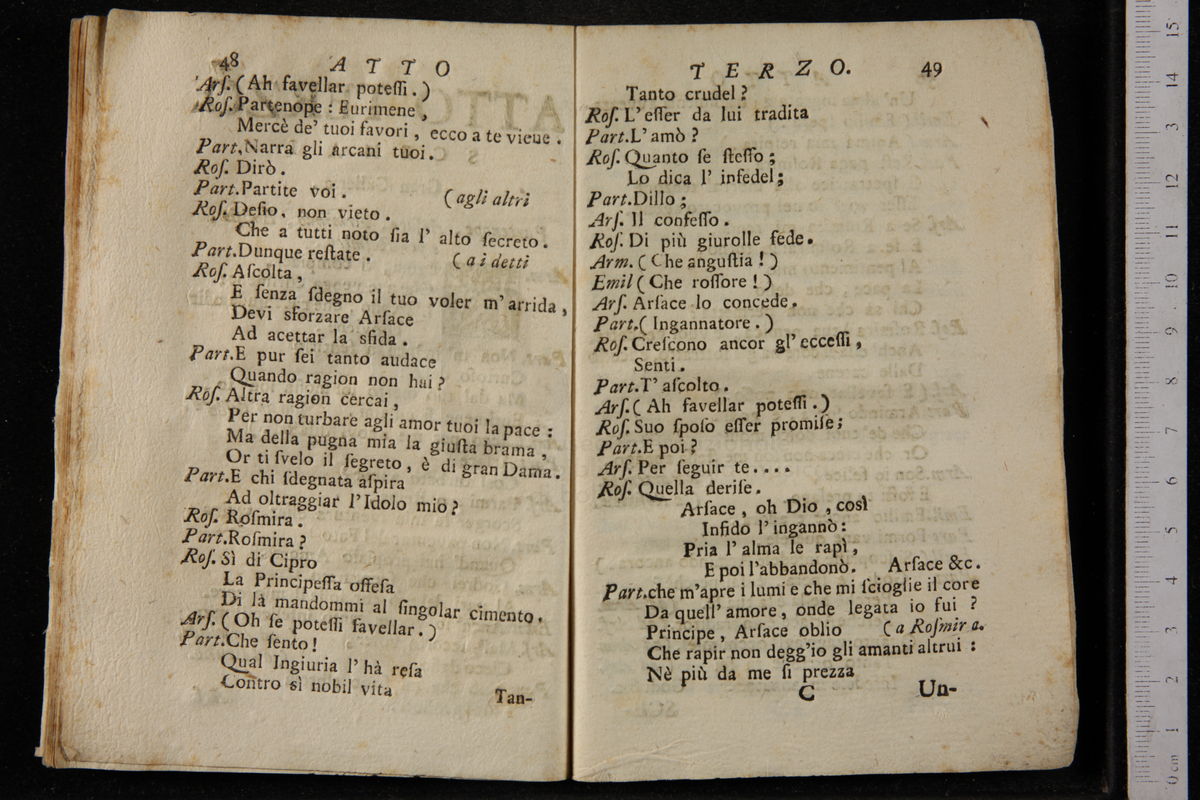 48 ATTO
Arſ. (Ah favellar poteſſi.)
Roſ. Partenope : Eurimene,
Mercè de' tuoi favori, ecco a te viene.
Part. Narra gli arcani tuoi.
Roſ. Dirò.
Part. Partite voi. (agli altri
Roſ. Deſio, non vieto.
Che a tutti noto ſia l' alto ſecreto.
Part. Dunque reſtate. (a i detti
Roſ. Aſcolta,
E ſenza ſdegno il tuo voler m'arrida,
Devi sforzare Arſace
Ad acettar la sfida.
Part. E pur ſei tanto audace
Quando ragion non hai?
Roſ. Altra ragion cercai,
Per non turbare agli amor tuoi la pace :
Ma della pugna mia la giuſta brama,
Or ti ſvelo il ſegreto, è di gran Dama.
Part. E chi ſdegnata aſpira
Ad oltraggiar l'Idolo mio?
Roſ. Roſmira.
Part. Roſmira?
Roſ. Sì di Cipro
La Principeſſa offeſa
Di là mandommi al ſingolar cimento.
Arſ. (Oh ſe poteſſi favellar.)
Part. Che ſento!
Qual Ingiuria l' hà reſa
Contro sì nobil vita
Tan-
TERZO. 49
Tanto crudel?
Roſ. L' eſſer da lui tradita
Part. L' amò?
Roſ. Quanto ſe ſteſſo;
Lo dica l' infedel;
Part. Dillo;
Arſ. Il confeſſo.
Roſ. Di più giurolle fede.
Arm. (Che anguſtia!)
Emil (Che roſſore!)
Arſ. Arſace lo concede.
Part. (Ingannatore.)
Roſ. Creſcono ancor gl' ecceſſi,
Senti.
Part. T' aſcolto.
Arſ. (Ah favellar poteſſi.)
Roſ. Suo ſpoſo eſſer promiſe;
Part. E poi?
Arſ. Per ſeguir te....
Roſ. Quella deriſe.
Arſace, oh Dio, così
Infido l' ingannò:
Pria l' alma le rapì,
E poi l'abbandonò. Arſace &c.
Part. che m'apre i lumi e che mi ſcioglie il core
Da quell' amore, onde legata io fui?
Principe, Arſace oblio (a Roſmira.
Che rapir non degg'io gli amanti altrui :
Nè più da me ſi prezza
C Un-
0 cm 1 2 3 4 5 6 7 8 9 10 11 12 13 14 15